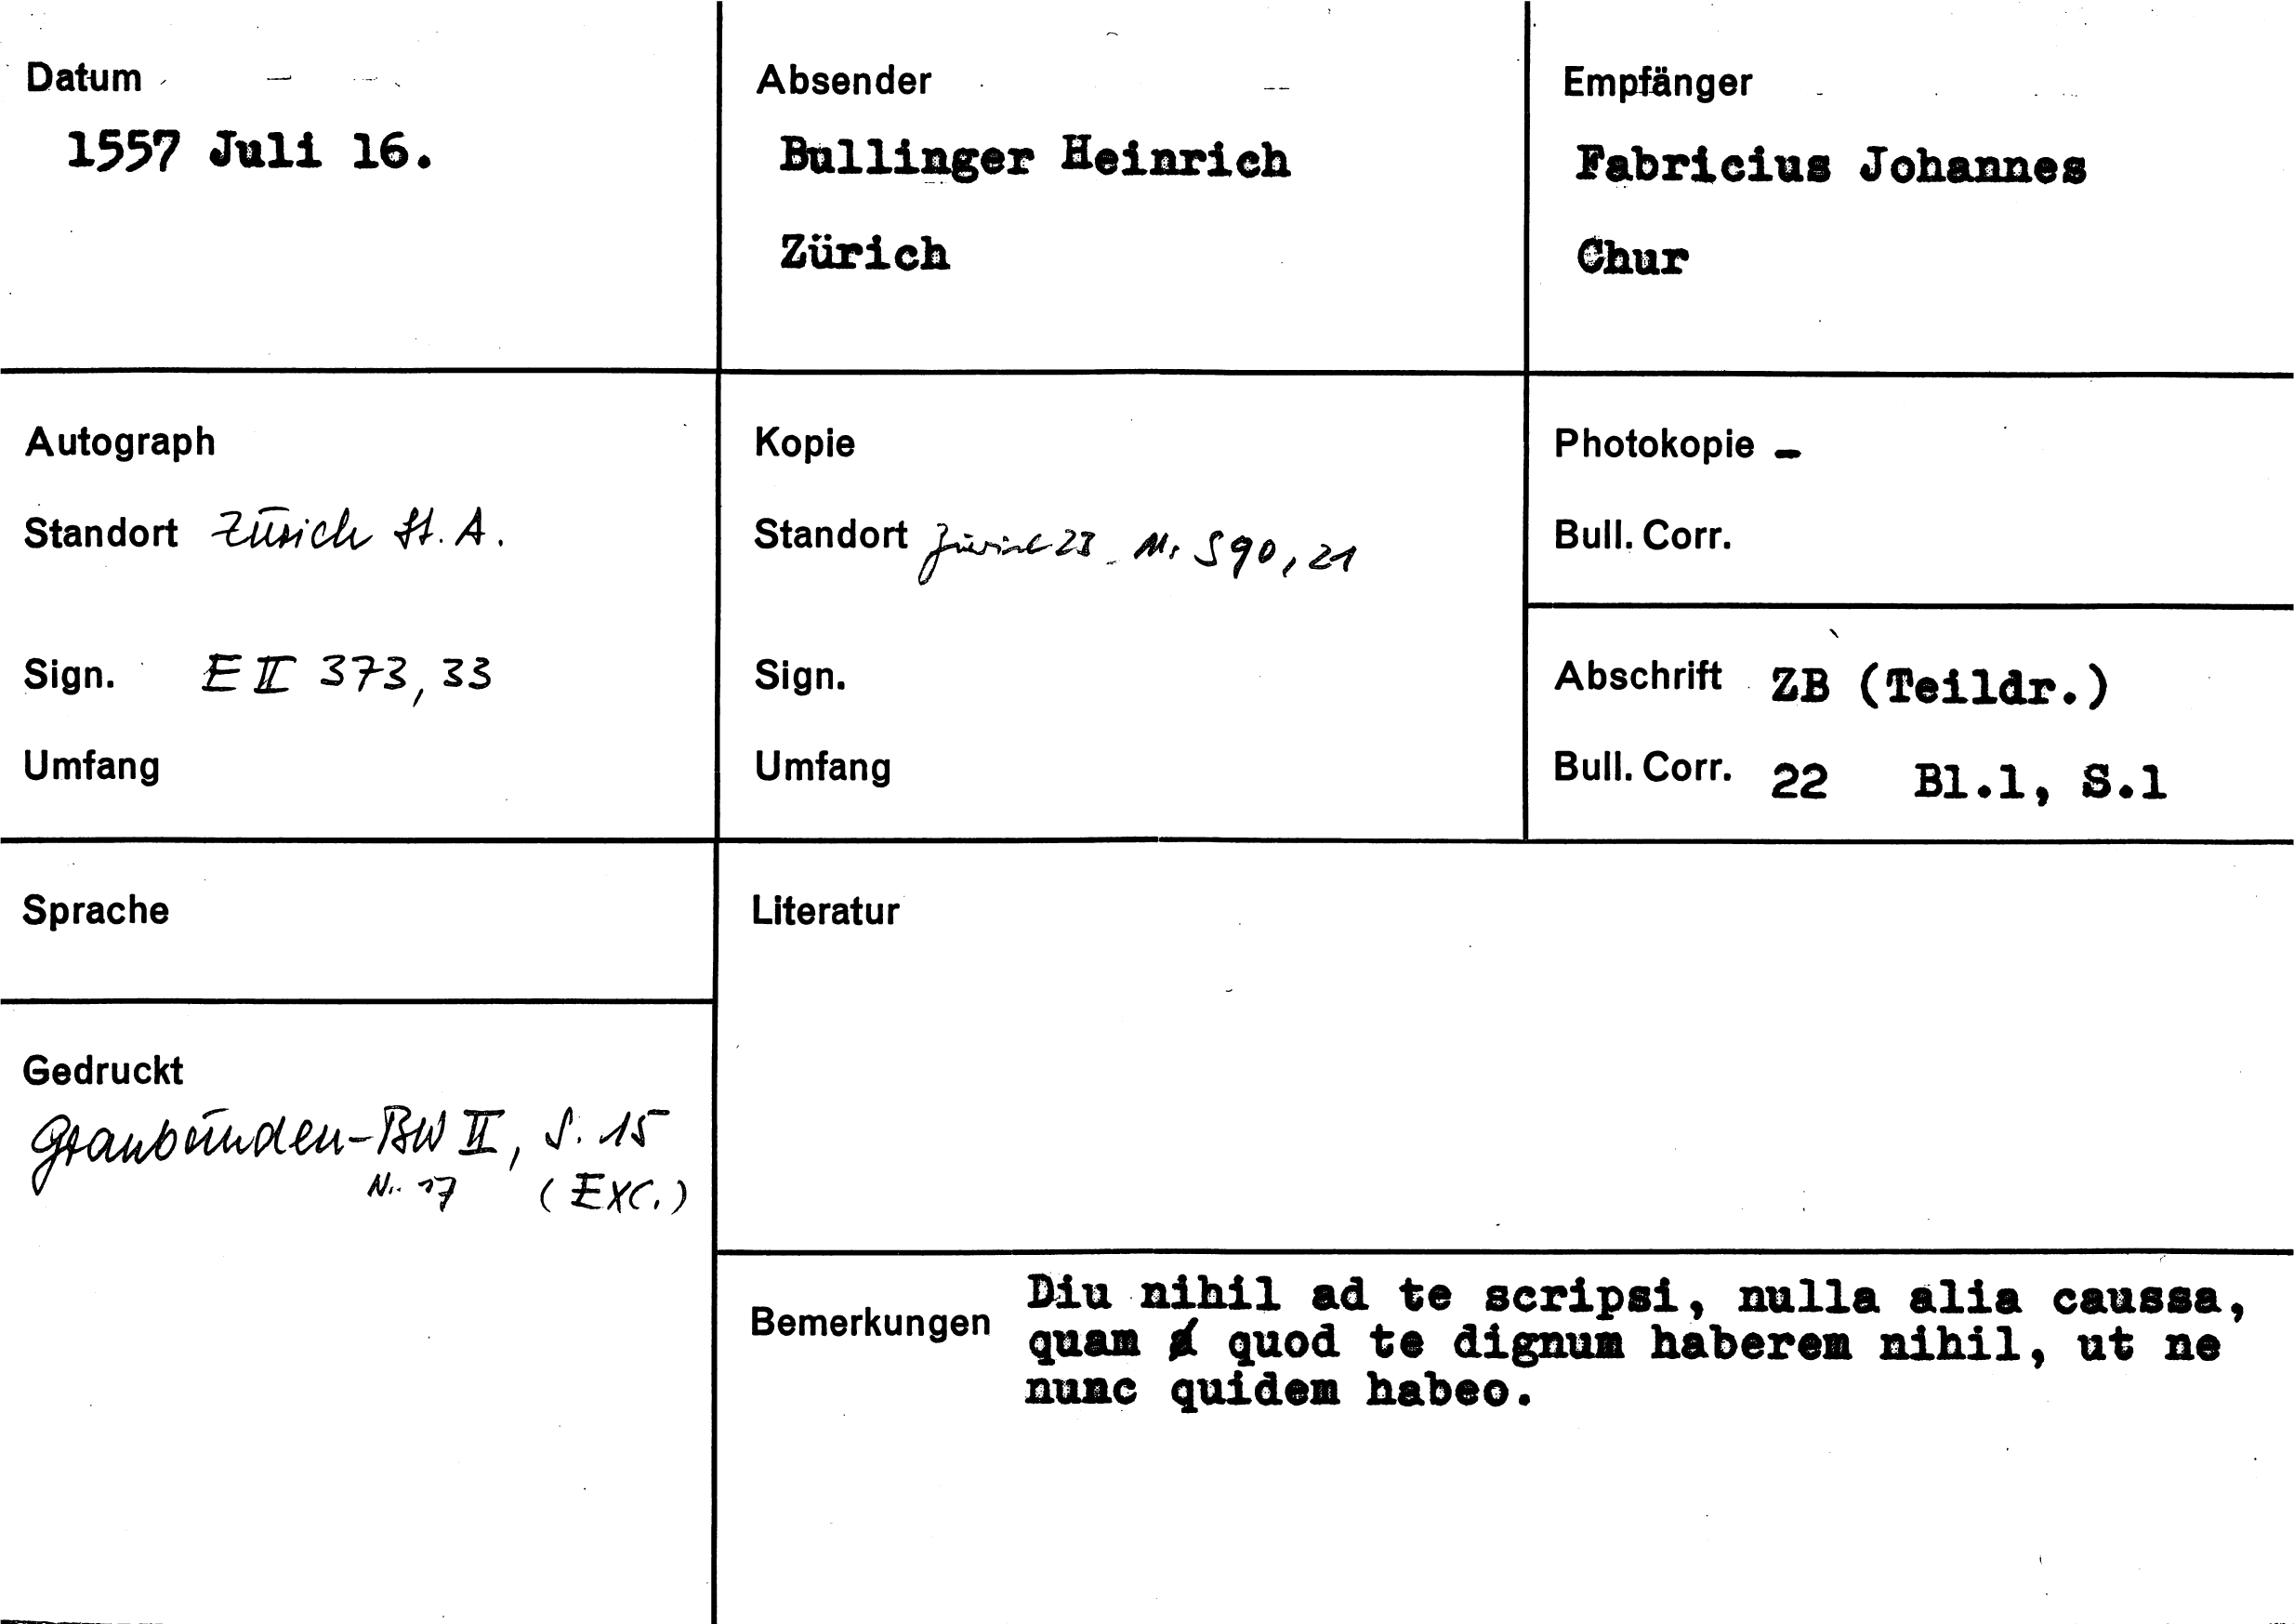 Datum
1557 Juli 16.
Absender
Bullinger Heinrich
Zürich
Empfänger
Fabricius Johannes
Chur
Autograph
Standort Zürich St. A.
Sign. E II 373, 33
Umfang
Kopie
Standort Zürich ZB Ms S 90, 21
Sign.
Umfang
Photokopie -
Bull. Corr.
Abschrift ZB (Teildr.)
Bull. Corr. 22 Bl.1, S.1
Sprache
Gedruckt
Graubünden-BW II, S. 15
Nr. 17 (Exc.)
Literatur
Bemerkungen
Diu nihil ad te scripsi, nulla alia caussa,
quam quod te dignum haberem nihil, ut ne
nunc quidem habeo.